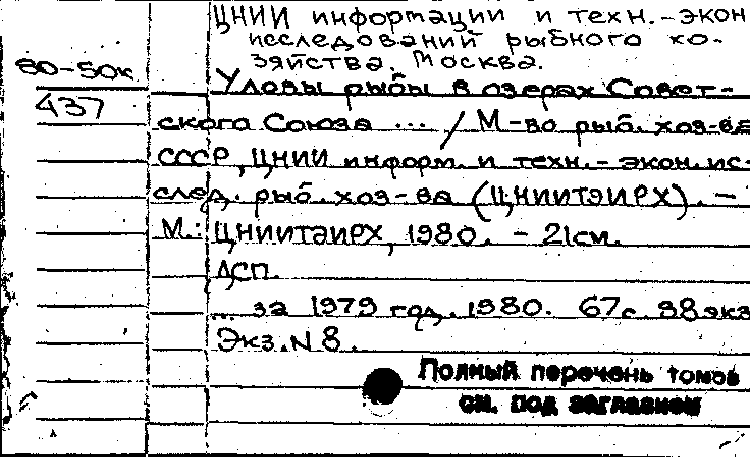 ЦНИИ информации и техн.-экон
исследований рыбного хо-
зяйства. Москва.
80-50к
Уловы рыбы в озерах Совет-
437
ского Союза ... / М-во рыб. хоз-ва
СССР, ЦНИИ информ. и техн.-экон. ис-
след. рыб. хоз-ва (ЦНИИТЭИРХ). -
М.: ЦНИИТЭИРХ, 1980. - 21см.
ДСП.
... за 1979 год. 1980. 67с. 98экз
Экз. N 8.
Полный перечень томов
см. под заглавием